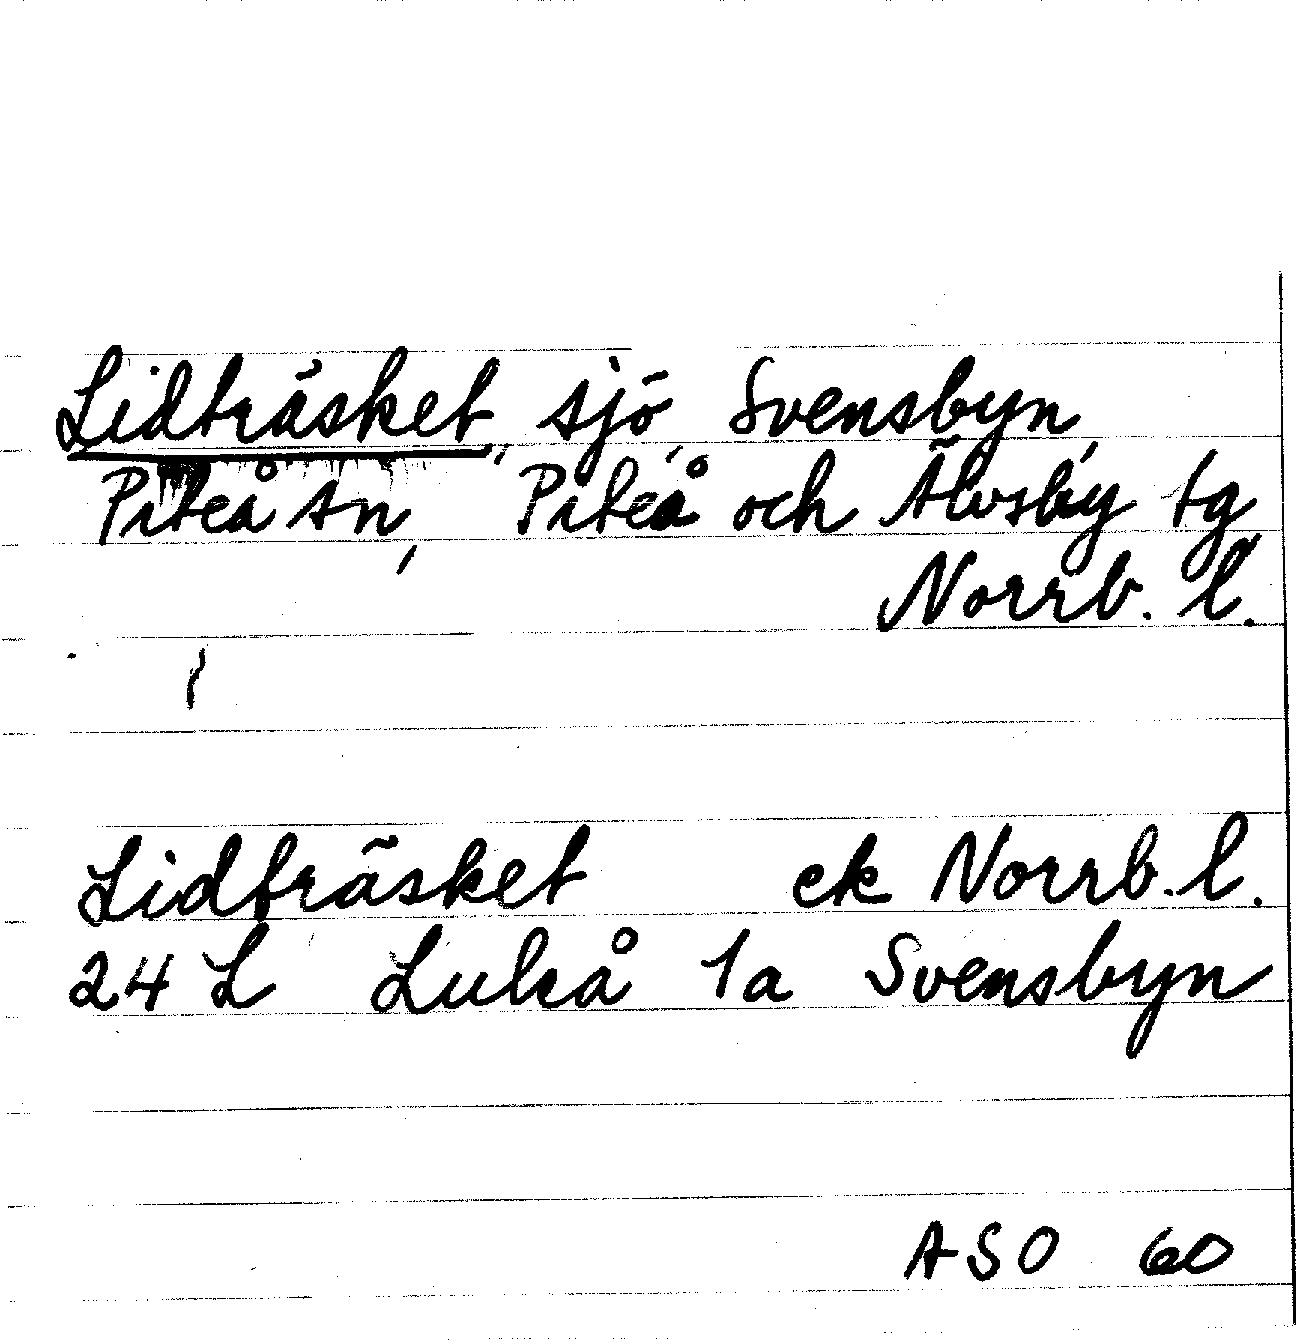 Lidträsket, sjö, Svensbyn,
Piteå sn, Piteå och Älvsby tg
Norrb. l.
Lidträsket ek Norrb. l.
24 L Luleå 1a Svensbyn
ASO 60